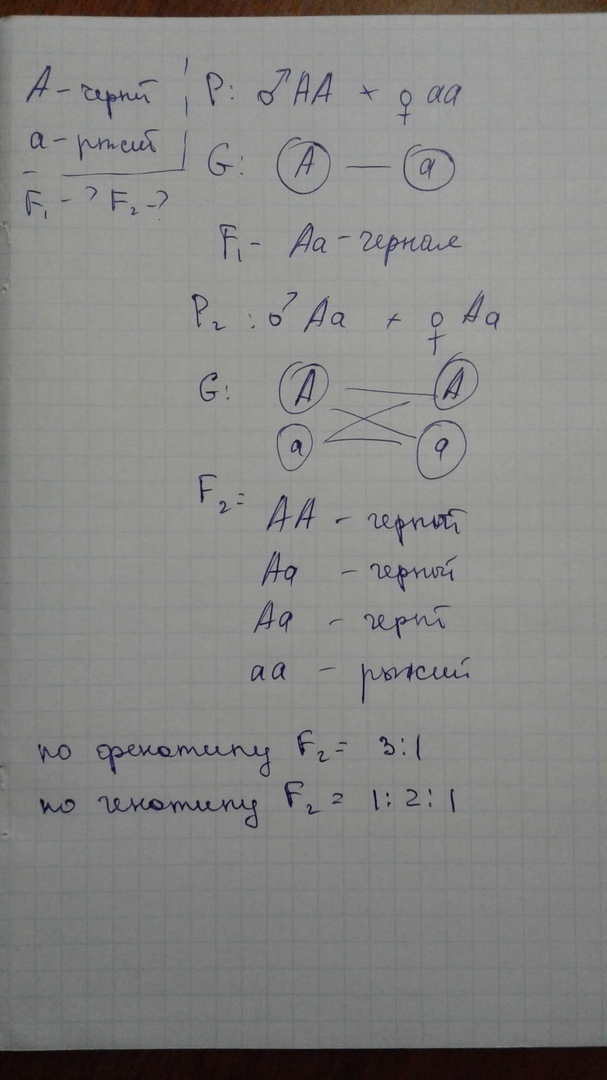 А - черный
а - рыжий
F₁ - ? F₂ - ?
P: ♂ AA × ♀ aa
G: A — a
F₁ - Aa - черная
P₂ : ♂ Aa × ♀ Aa
G: A A
a a
F₂ =
AA - черный
Aa - черный
Aa - черн
aa - рыжий
по фенотипу F₂ = 3:1
по генотипу F₂ = 1:2:1